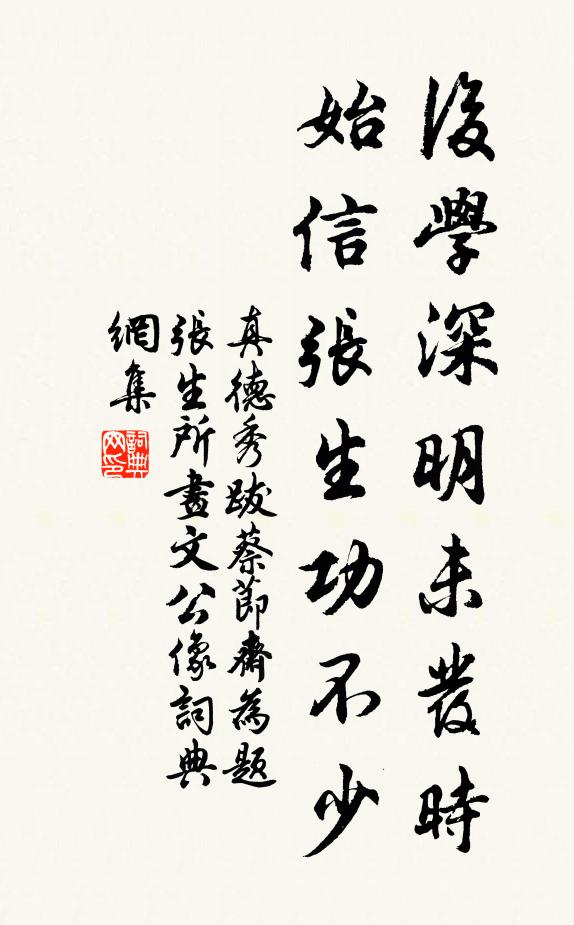 後學深明未發時
始信張生功不少
真德秀跋蔡節齋為題
張生所畫文公像詞典
網集
詞典
网印